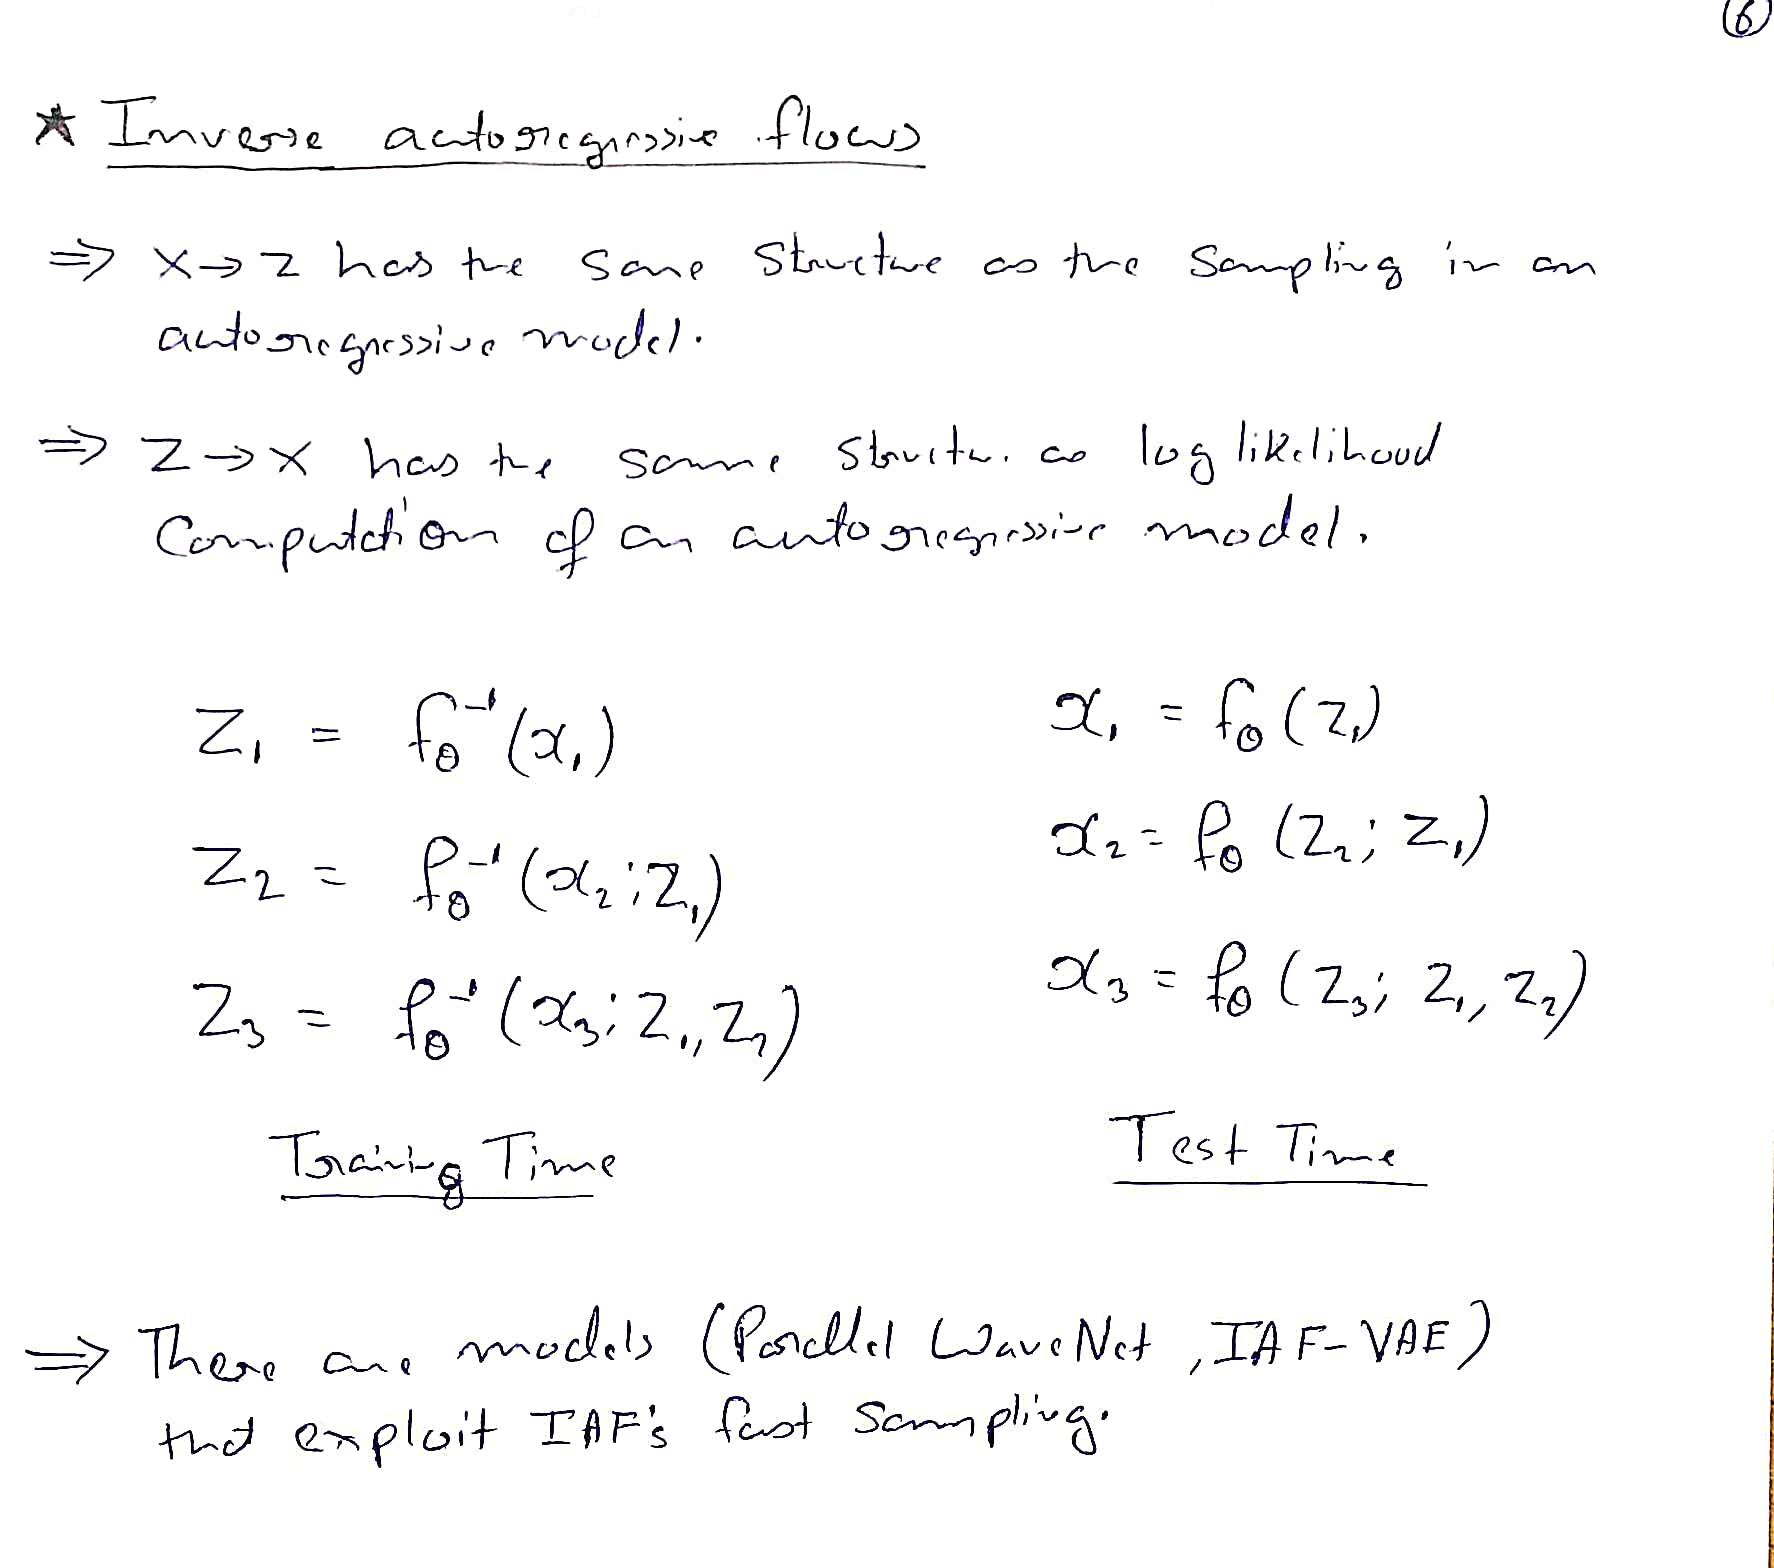 6
* Inverse autoregressive flows
⇒ x→z has the same structure as the sampling in an
autoregressive model.
⇒ z→x has the same structure as log likelihood
Computation of an autoregressive model.
z₁ = f_θ⁻¹(x₁)    x₁ = f_θ(z₁)
z₂ = f_θ⁻¹(x₂; z₁)    x₂ = f_θ(z₂; z₁)
z₃ = f_θ⁻¹(x₃; z₁, z₂)    x₃ = f_θ(z₃; z₁, z₂)
Training Time    Test Time
⇒ There are models (Parallel WaveNet, IAF-VAE)
that exploit IAF's fast sampling.